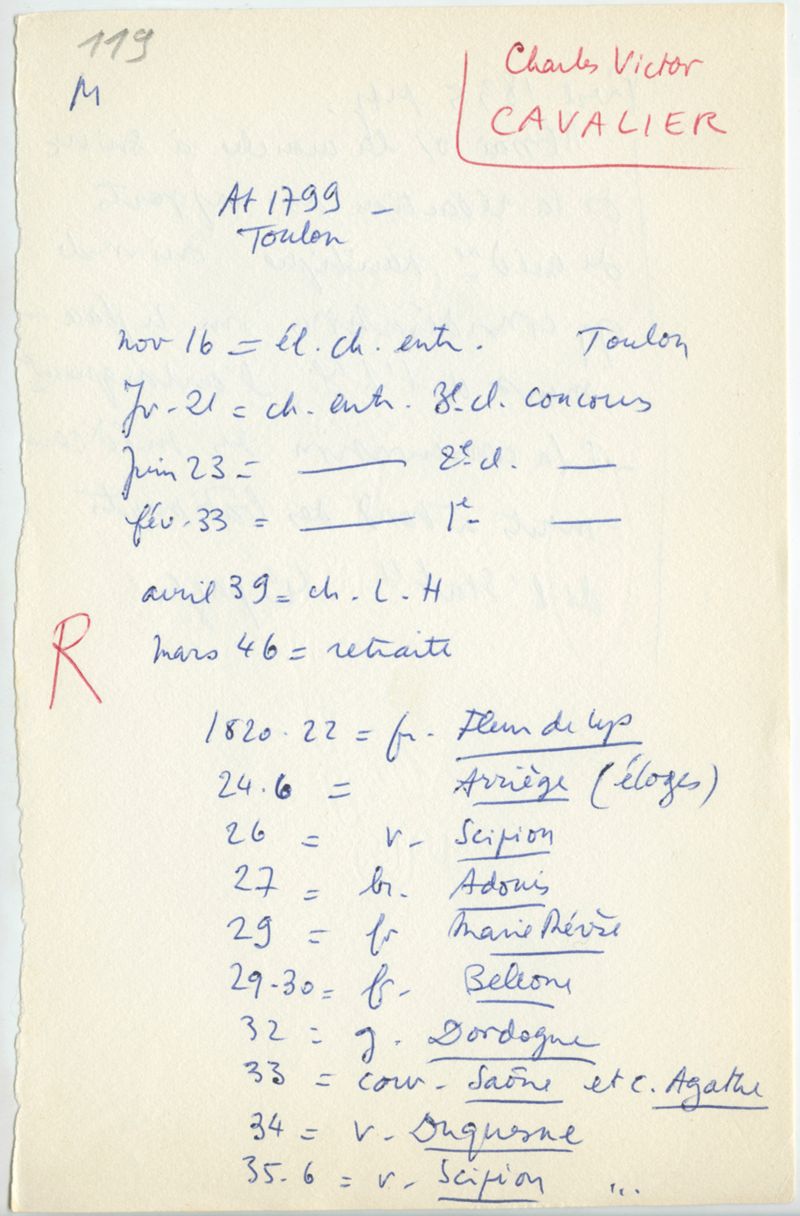 119
M
Charles Victor
CAVALIER
At 1799 -
Toulon
nov 16 = él. ch. entr. Toulon
Jr. 21 = ch. entr. 3e cl. concours
Juin 23 = —— 2e cl. ——
fév. 33 = —— 1e - ——
avril 39 = ch. L. H
R
mars 46 = retraite
1820-22 = fr. Fleur de Lys
24.6 = Arriège (éloges)
26 = v. Scipion
27 = br. Adonis
29 = fr Marie Thérèse
29-30 = fr. Bellone
32 = g. Dordogne
33 = corv. Saône et c. Agathe
34 = v. Duquesne
35.6 = v. Scipion ...